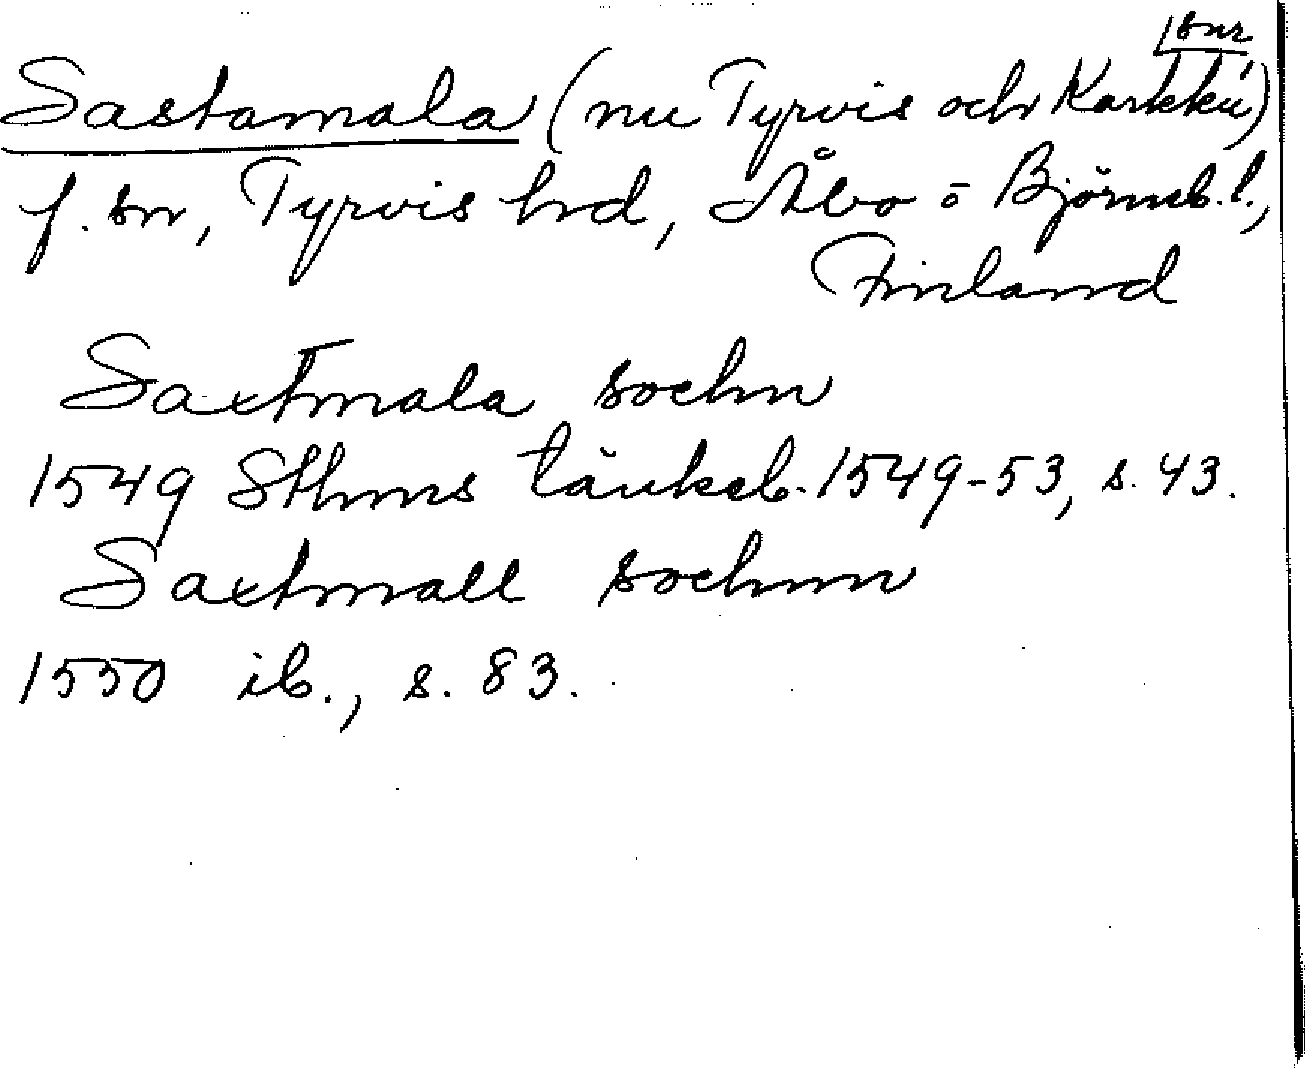 Sastamala (nu Tyrvis och Karkku snr)
f. sn, Tyrvis hd, Åbo o Björneb. l.,
Finland
Saxtmala sochn
1549 Sthms tänkeb. 1549-53, s. 43.
Saxtmall sochnn
1550 ib., s. 83.